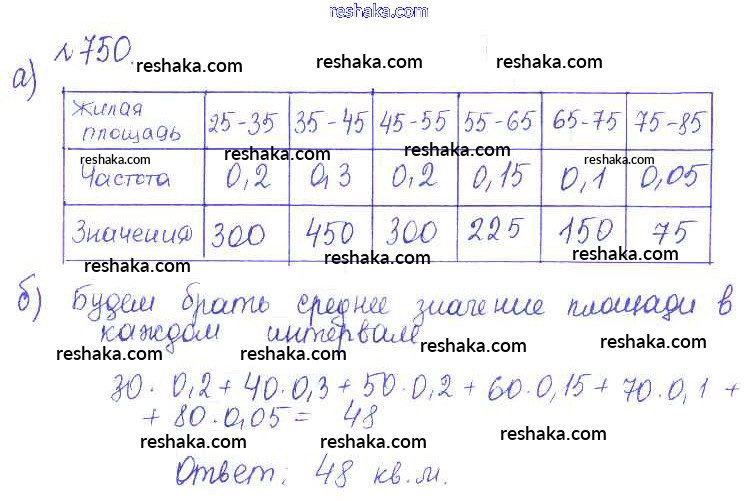 reshaka.com
№750.
reshaka.com reshaka.com reshaka.com
а)
Жилая площадь 25-35 35-45 45-55 55-65 65-75 75-85
reshaka.com reshaka.com reshaka.com
Частота 0,2 0,3 0,2 0,15 0,1 0,05
Значения 300 450 300 225 150 75
reshaka.com reshaka.com reshaka.com
б) Будем брать среднее значение площади в
каждом интервале
reshaka.com reshaka.com reshaka.com
30·0,2+40·0,3+50·0,2+60·0,15+70·0,1+
+80·0,05= 48
reshaka.com reshaka.com reshaka.com
Ответ: 48 кв.м.